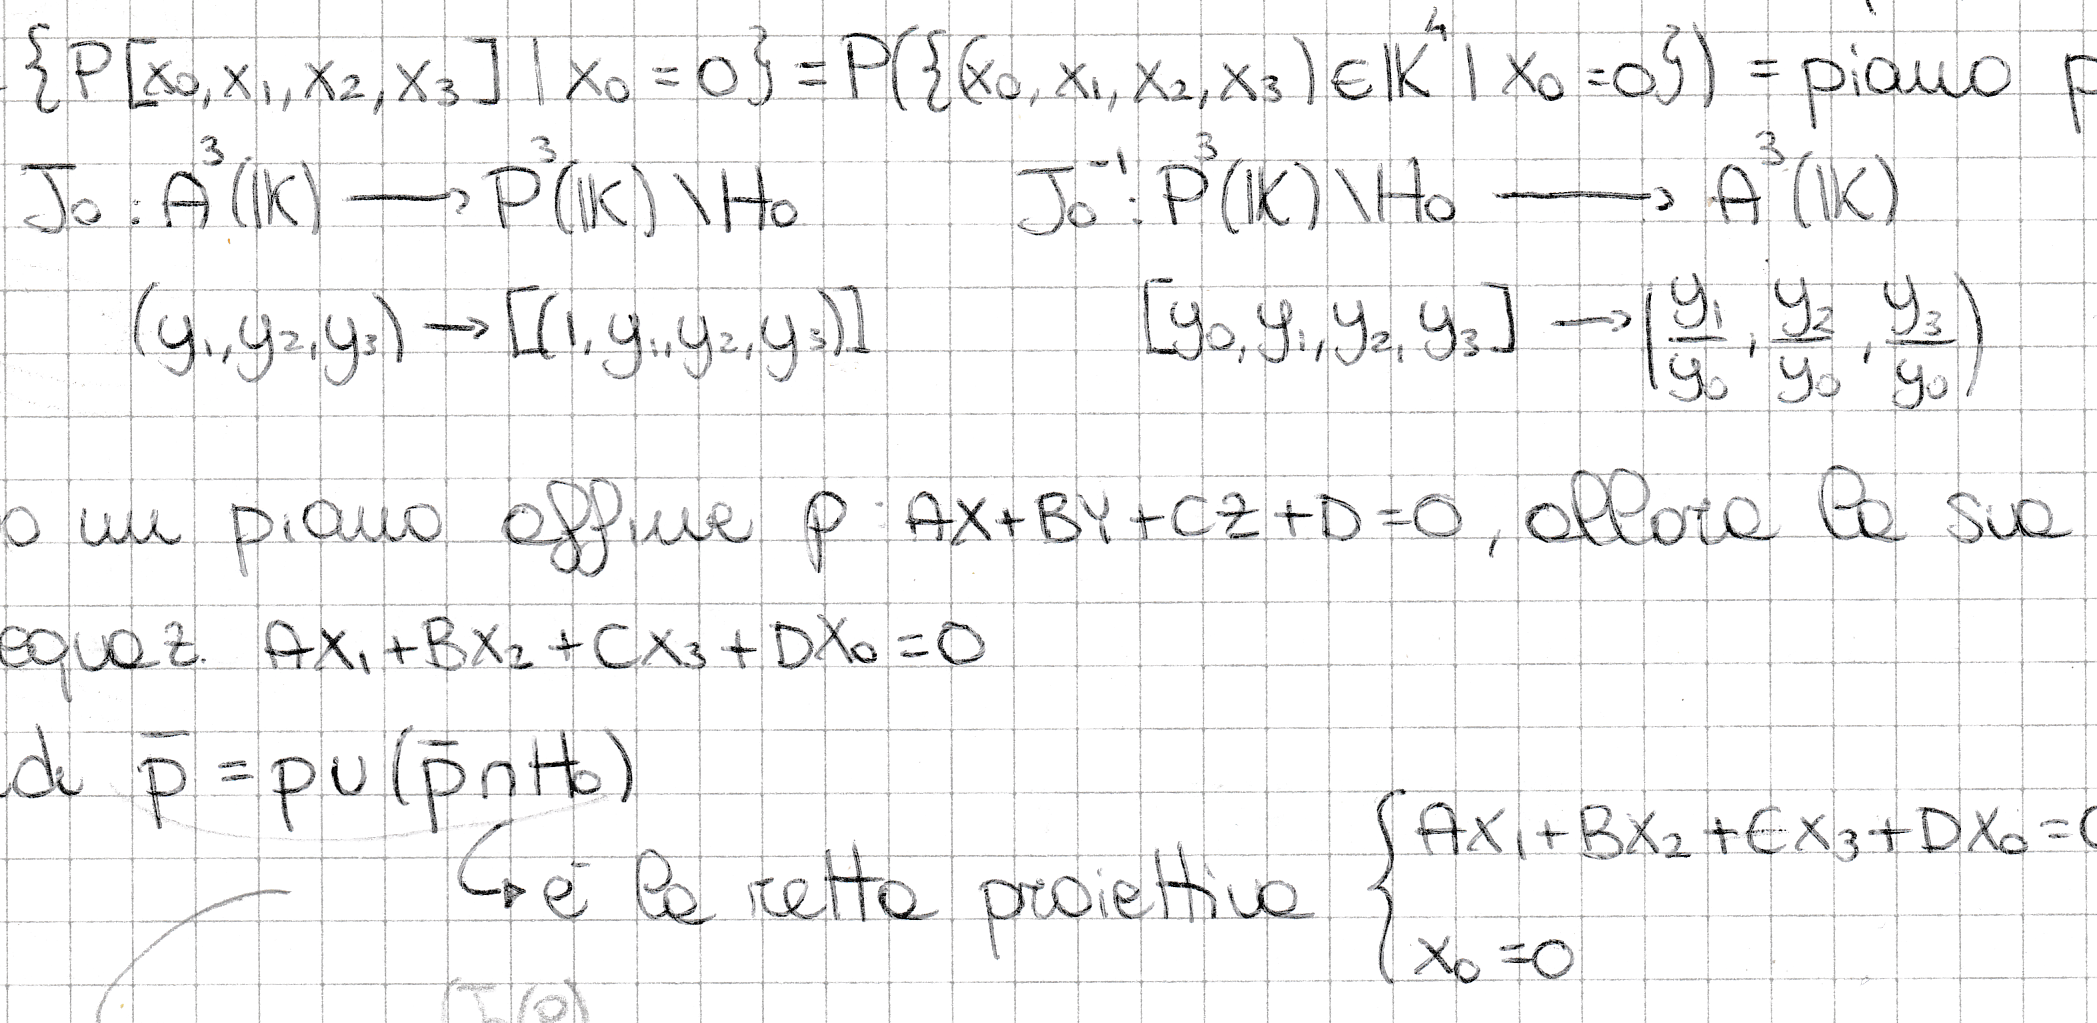 {P[x₀,x₁,x₂,x₃] | x₀=0} = P({(x₀,x₁,x₂,x₃)∈𝕂⁴ | x₀=0}) = piano p
J₀: A³(𝕂) → P³(𝕂)\H₀    J₀⁻¹: P³(𝕂)\H₀ → A³(𝕂)
(y₁,y₂,y₃) → [(1,y₁,y₂,y₃)]    [y₀,y₁,y₂,y₃] → (y₁/y₀, y₂/y₀, y₃/y₀)
o un piano affine p: AX+BY+CZ+D=0, allora la sua
equaz. AX₁+BX₂+CX₃+DX₀=0
di p̄ = p∪(p̄∩H₀)
↳ è la retta proiettiva { AX₁+BX₂+CX₃+DX₀=0
x₀=0